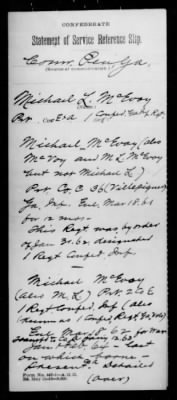 CONFEDERATE
Statement of Service Reference Slip.
Comr. Pen Ga.
Michael L. McEvoy
Pvt. Co. E & A 1 Confed. Ga. Regt.
Michael McEvoy (also
McVoy and M L McEvoy
but not Michael L)
Pvt. Co. C 36 (Villepigue's)
Ga. Inf. Enl. Mar 18. 61
for 12 mos.
This Regt was by order
of Jan 31. 62 designated
1 Regt Confed. Inf
Michael McEvoy
(also M. L) Pvt. 2nd E
1 Regt Confed. Inf (also
known as 1 Confed. Regt. Ga. Vols)
Enl Mar 18 62 for War
Jan & Feb 64 last
on which borne
Present. Detailed
(over)